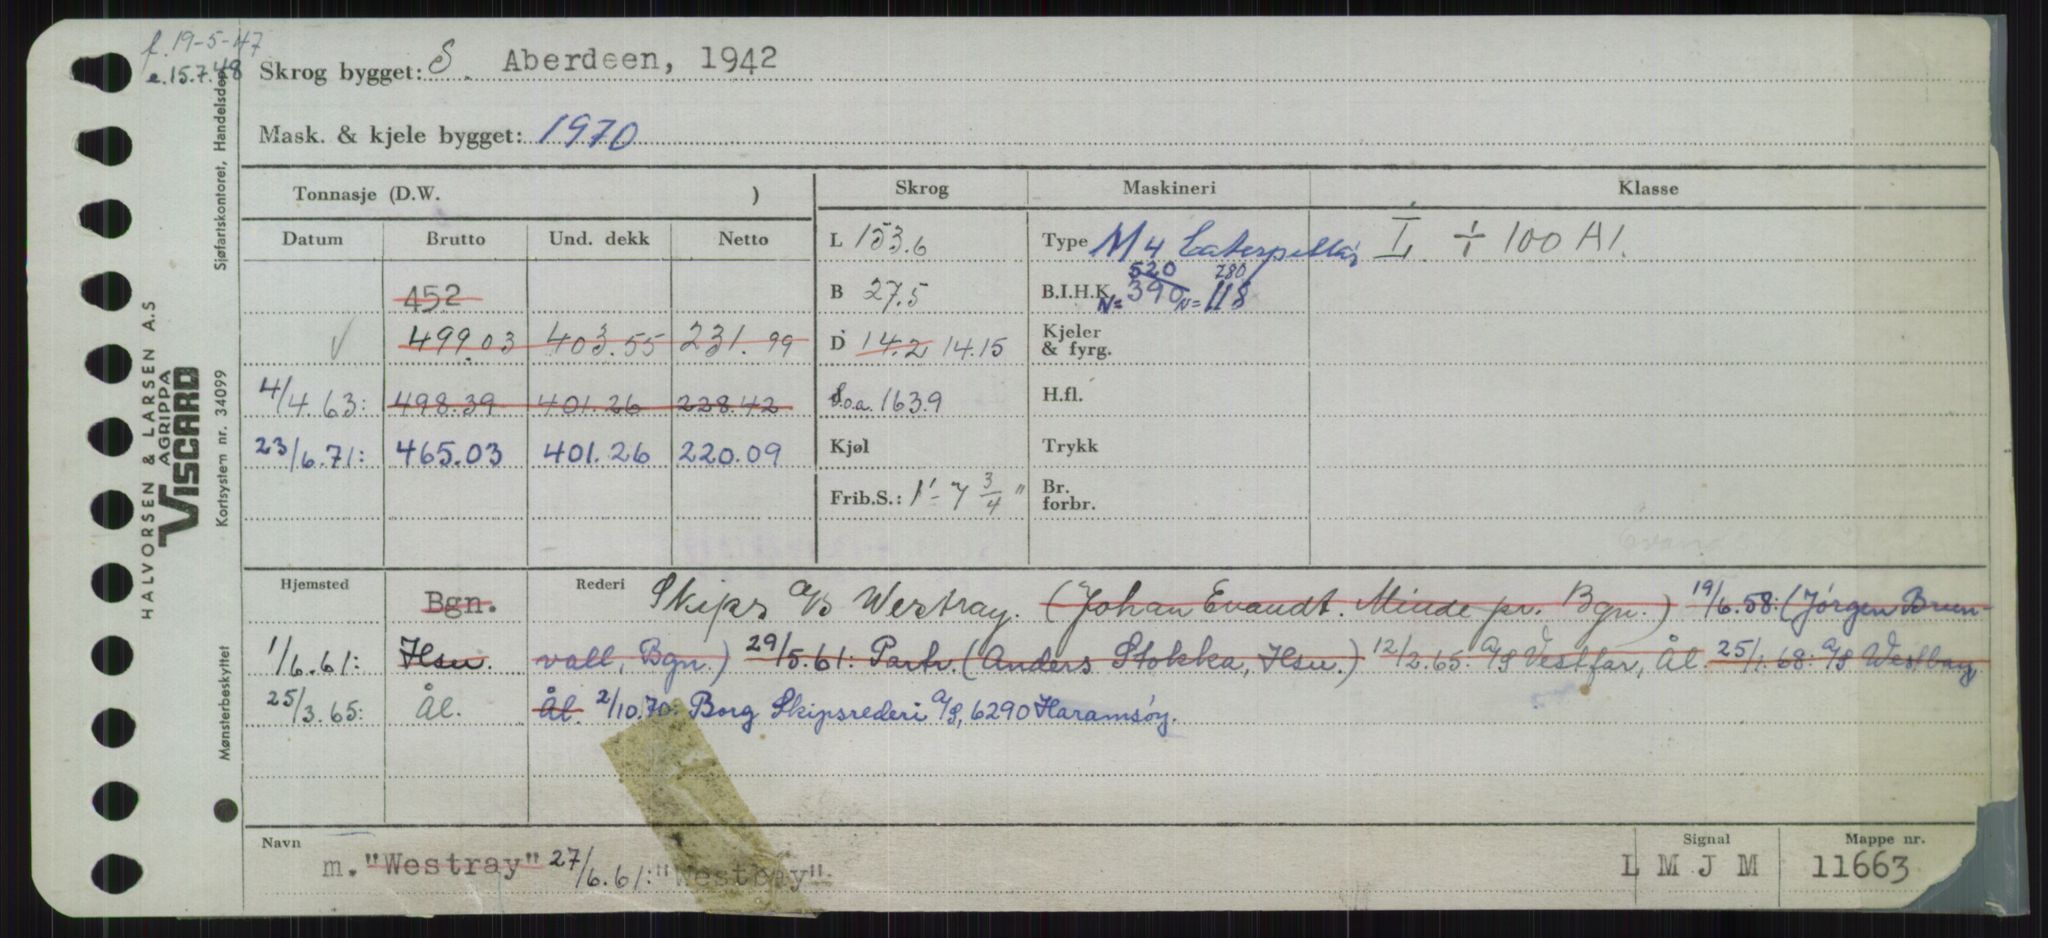 f. 19-5-47
e. 15.7.48
Skrog bygget: S. Aberdeen, 1942
Mask. & kjele bygget: 1970
Tonnasje (D.W. )
Skrog
Maskineri
Klasse
Datum Brutto Und. dekk Netto
L 153.6
Type M 4 Caterpillar
I + 100 A1.
452
B 27.5
B.I.H.K. 520 780
N= 390 N= 118
499.03 403.55 231.99
D 14.2 14.15
Kjeler & fyrg.
4/4.63: 498.39 401.26 228.42
L.o.a. 163.9
H.fl.
23/6.71: 465.03 401.26 220.09
Kjøl
Trykk
Frib.S.: 1'-7 3/4"
Br. forbr.
Hjemsted Bgn. Rederi Skips a/s Westray. (Johan Evandt. Minde pr. Bgn.) 19/6.58: (Jørgen Brun-
1/6.61: Hsu. vall, Bgn.) 29/5.61: Partr. (Anders Stokka, Hsu.) 12/2.65: A/S Vestfar, Ål. 25/1.68: A/S Westbay
25/3.65: Ål. Ål. 2/10.70: Borg Skipsrederi A/S, 6290 Haramsøy.
Navn m. "Westray" 27/6.61: "Westbay"
Signal L M J M
Mappe nr. 11663
HALVORSEN & LARSEN A.S
AGRIPPA
VISCARD
Mønsterbeskyttet Kortsystem nr. 34099 Sjøfartskontoret, Handelsdep.